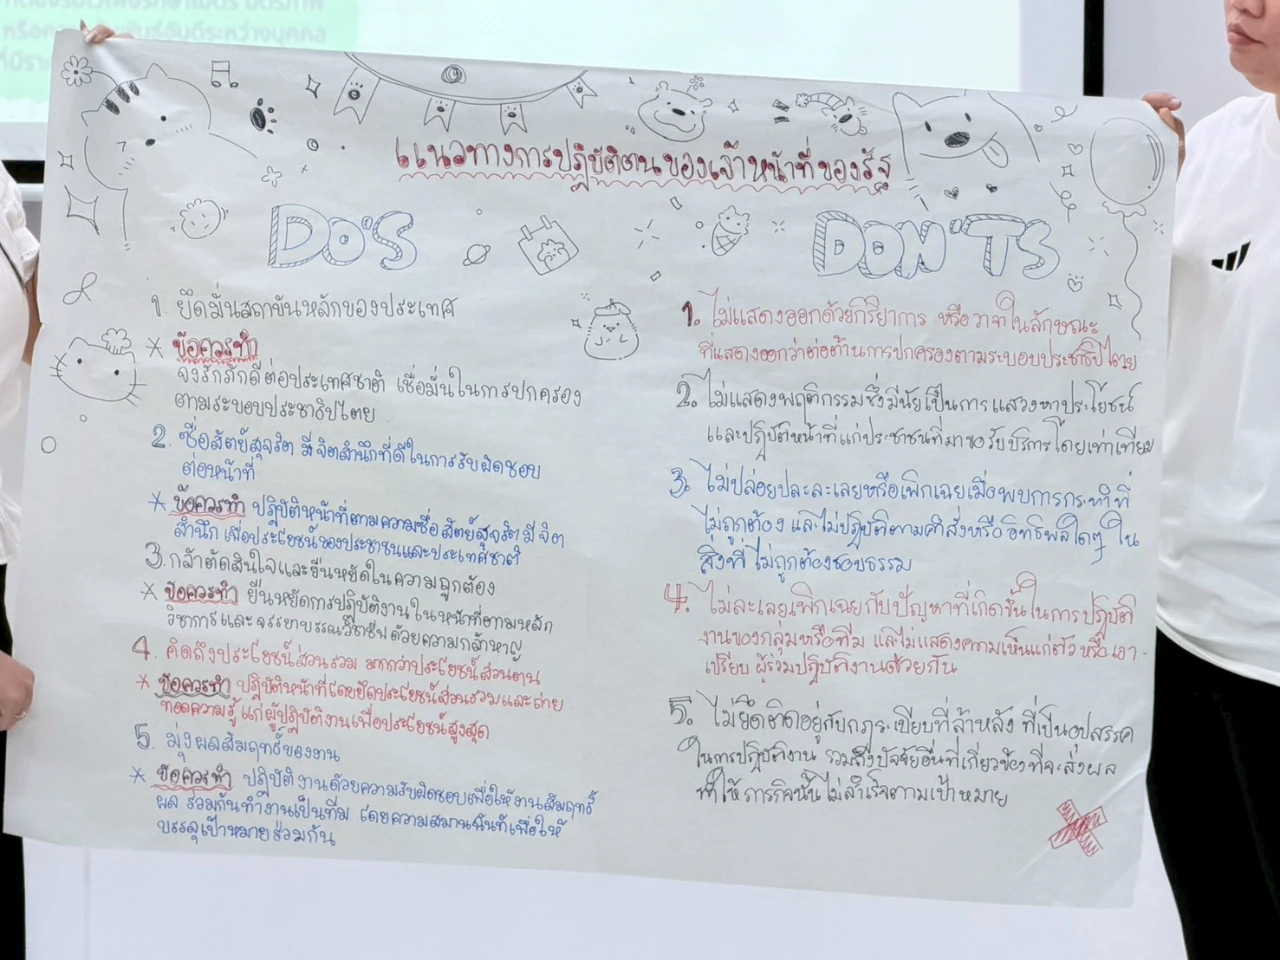 หรือความสัมพันธ์อันดีระหว่างบุคคล
แนวทางการปฏิบัติตนของเจ้าหน้าที่ของรัฐ
DO'S
1. ยึดมั่นสถาบันหลักของประเทศ
* ข้อควรทำ
จงรักภักดีต่อประเทศชาติ เชื่อมั่นในการปกครอง
ตามระบอบประชาธิปไตย
2. ซื่อสัตย์สุจริต มีจิตสำนึกที่ดีในการรับผิดชอบ
ต่อหน้าที่
* ข้อควรทำ ปฏิบัติหน้าที่ตามความซื่อสัตย์สุจริต มีจิต
สำนึก เพื่อประโยชน์ของประชาชนและประเทศชาติ
3. กล้าตัดสินใจและยืนหยัดในความถูกต้อง
* ข้อควรทำ ยืนหยัดการปฏิบัติงานในหน้าที่ตามหลัก
วิชาการและจรรยาบรรณวิชาชีพด้วยความกล้าหาญ
4. คิดถึงประโยชน์ส่วนรวม มากกว่าประโยชน์ส่วนตน
* ข้อควรทำ ปฏิบัติหน้าที่โดยยึดประโยชน์ส่วนรวมและถ่าย
ทอดความรู้ แก่ผู้ปฏิบัติงานเพื่อประโยชน์สูงสุด
5. มุ่งผลสัมฤทธิ์ของงาน
* ข้อควรทำ ปฏิบัติงานด้วยความรับผิดชอบเพื่อให้งานสัมฤทธิ์
ผล ร่วมกันทำงานเป็นทีม โดยความสมานฉันท์เพื่อให้
บรรลุเป้าหมายร่วมกัน
DON'TS
1. ไม่แสดงออกด้วยกิริยาการ หรือวาจาในลักษณะ
ที่แสดงออกว่าต่อต้านการปกครองตามระบอบประชาธิปไตย
2. ไม่แสดงพฤติกรรมซึ่งมีนัยเป็นการแสวงหาประโยชน์
และปฏิบัติหน้าที่แก่ประชาชนที่มาขอรับบริการโดยเท่าเทียม
3. ไม่ปล่อยปละละเลยหรือเพิกเฉยเมื่อพบการกระทำที่
ไม่ถูกต้อง และไม่ปฏิบัติตามคำสั่งหรืออิทธิพลใดๆ ใน
สิ่งที่ไม่ถูกต้องชอบธรรม
4. ไม่ละเลยเพิกเฉยกับปัญหาที่เกิดขึ้นในการปฏิบัติ
งานของกลุ่มหรือทีม และไม่แสดงความเห็นแก่ตัว หรือเอา-
เปรียบ ผู้ร่วมปฏิบัติงานด้วยกัน
5. ไม่ยึดติดอยู่กับกฎระเบียบที่ล้าหลัง ที่เป็นอุปสรรค
ในการปฏิบัติงาน รวมถึงปัจจัยอื่นที่เกี่ยวข้องที่จะส่งผล
ทำให้ภารกิจนั้นไม่สำเร็จตามเป้าหมาย